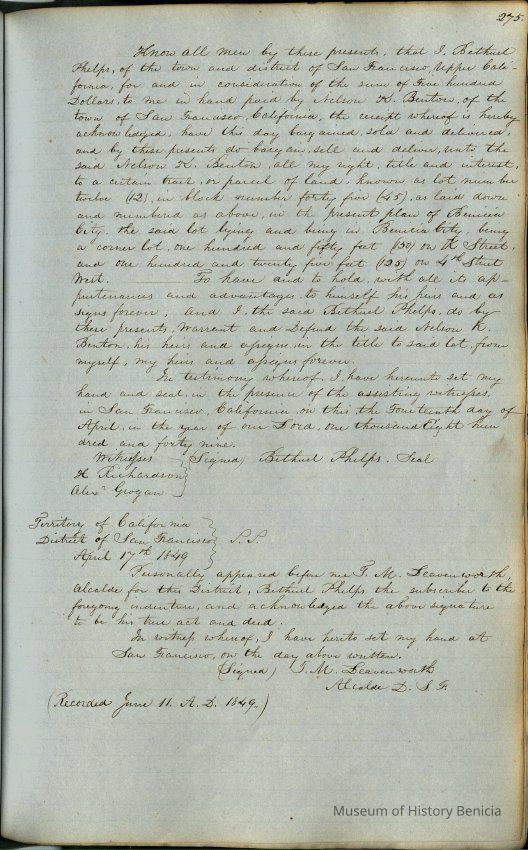 275.
Know all men by these presents, that I, Bethuel
Phelps, of the town and district of San Francisco, Upper Cali-
fornia, for and in consideration of the sum of Five hundred
Dollars, to me in hand paid by Nelson K. Benton, of the
town of San Francisco, California, the receipt whereof is hereby
acknowledged, have this day bargained, sold and delivered,
and by these presents do bargain, sell and deliver, unto the
said Nelson K. Benton, all my right, title and interest,
to a certain tract, or parcel of land, known as lot number
twelve (12), in block number forty five (45), as laid down
and numbered as above, in the present plan of Benicia
City. the said lot lying and being in Benicia City, being
a corner lot, one hundred and fifty feet (150) on Street,
and one hundred and twenty five feet (125) on 4th Street
West. To have and to hold, with all its ap-
purtenances and advantages, to himself his heirs and as
signs forever, and I, the said Bethuel Phelps, do by
these presents, Warrant and Defend the said Nelson K.
Benton, his heirs and assigns, in the title to said lot, from
myself, my heirs and assigns forever.
In testimony whereof, I have hereunto set my
hand and seal, in the presence of the assisting witnesses,
in San Francisco, California on this the Fourteenth day of
April, in the year of our Lord, one thousand Eight hun
dred and forty nine.
Witnesses (Signed) Bethuel Phelps. Seal
H Richardson
Alexr Grogan
Territory of California
District of San Francisco S.S.
April 17th 1849
Personally appeared before me T. M. Leavenworth,
Alcalde for this District, Bethuel Phelps the subscriber to the
foregoing indenture, and acknowledged the above signature
to be his true act and deed.
In witness whereof, I have hereto set my hand at
San Francisco, on the day above written.
(Signed) T. M. Leavenworth
Alcalde D. S. F.
(Recorded June 11. A. D. 1849.)
Museum of History Benicia